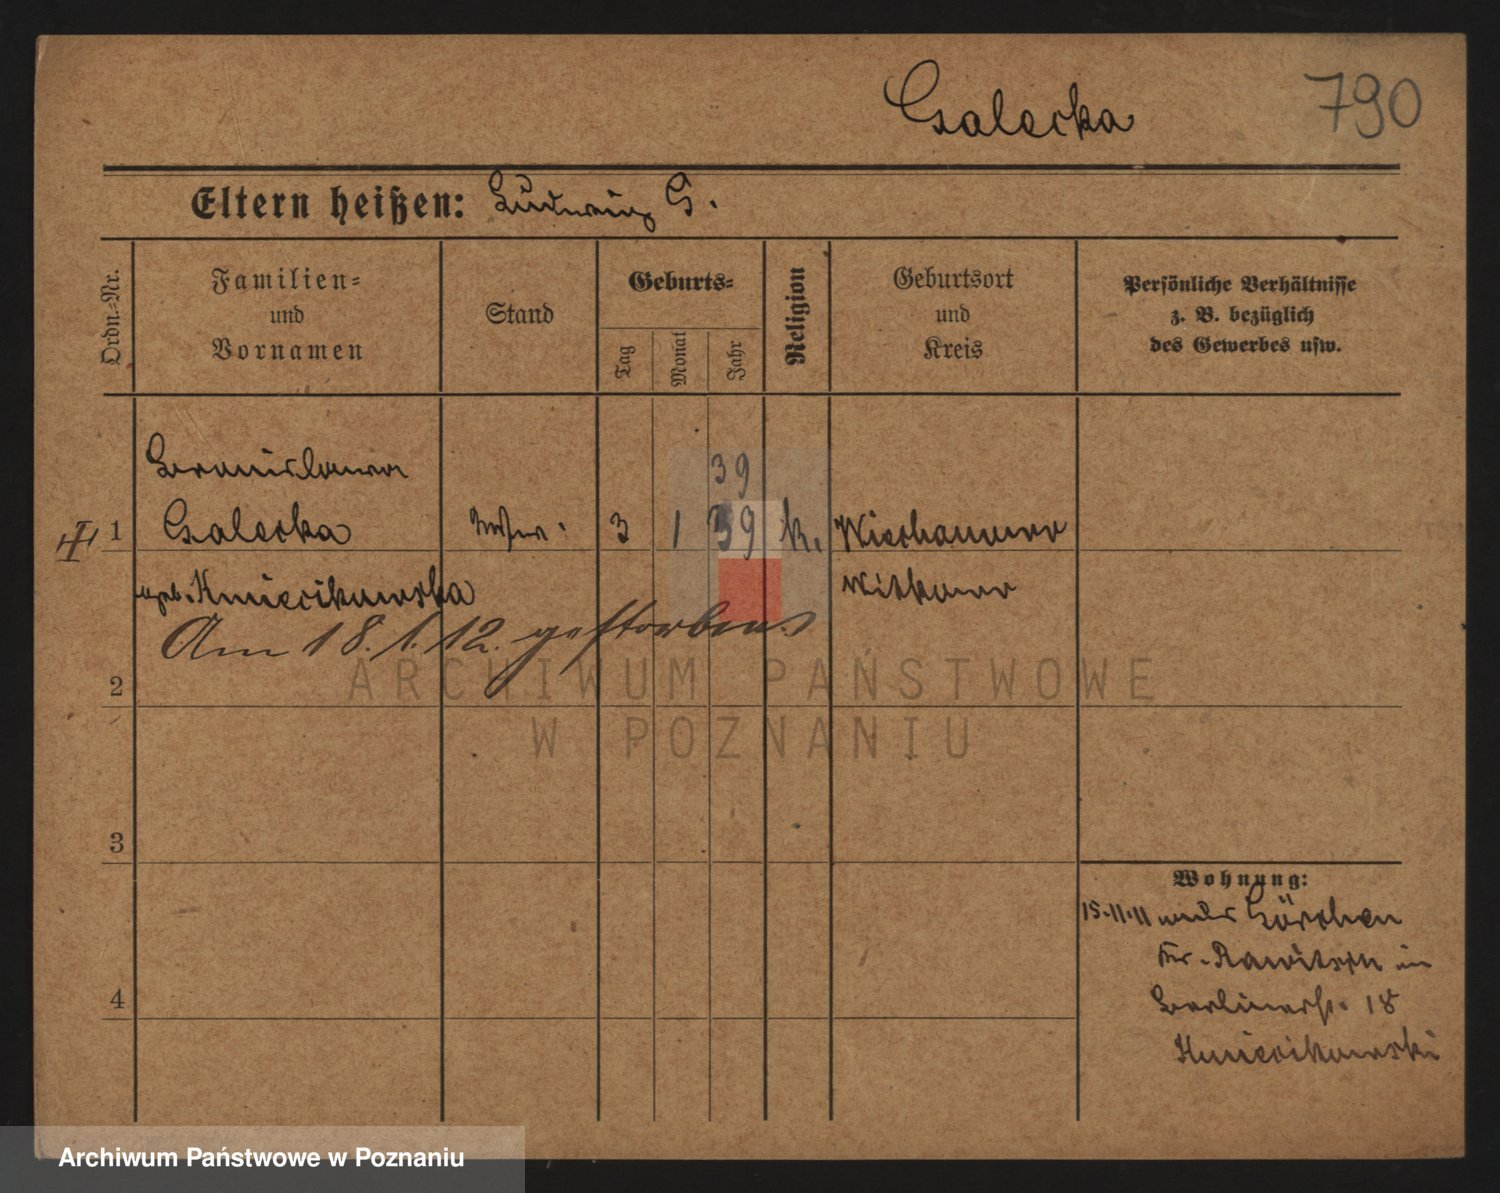 Galecka 790
Eltern heißen: Ludwig G.
Ordn.-Nr.
Familien-
und
Vornamen
Stand
Geburts-
Tag
Monat
Jahr
Religion
Geburtsort
und
Kreis
Persönliche Verhältnisse
z. B. bezüglich
des Gewerbes usw.
Bronislawa
39
1 Galecka 3 1 39 k.
geb. Kmiecikowska Witkowo
Am 18. 1. 12. gestorben
2
3
4
Wohnung:
15.11.11 Görchen
Kr. Rawitsch in
Berlinerstr. 18
Kmiecikowski
ARCHIWUM PAŃSTWOWE
W POZNANIU
Archiwum Państwowe w Poznaniu